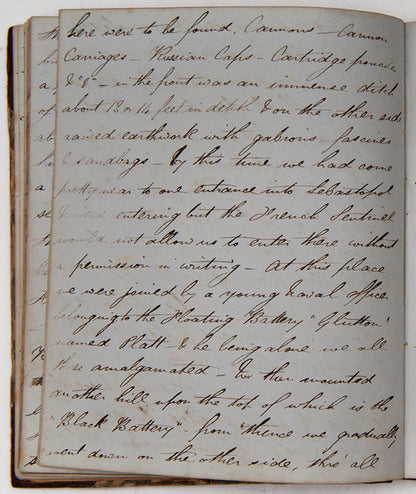 here were to be found, Cannons - Cannon
Carriages - Russian Caps - Cartridge pouches
&c &c - in the front was an immense ditch
about 12 or 14 feet in depth & on the other side
raised earthwork with gabions - fascines
& sandbags - By this time we had come
pretty near to one entrance into Sebastopol
& were entering but the French Sentinel
would not allow us to enter there without
a permission in writing - At this place
we were joined by a young Naval officer
belonging to the Floating Battery "Glutton"
named Platt - & he being alone we all
three amalgamated - We then mounted
another hill upon the top of which is the
"Black Battery" - from thence we gradually
went down on the other side, thro' all